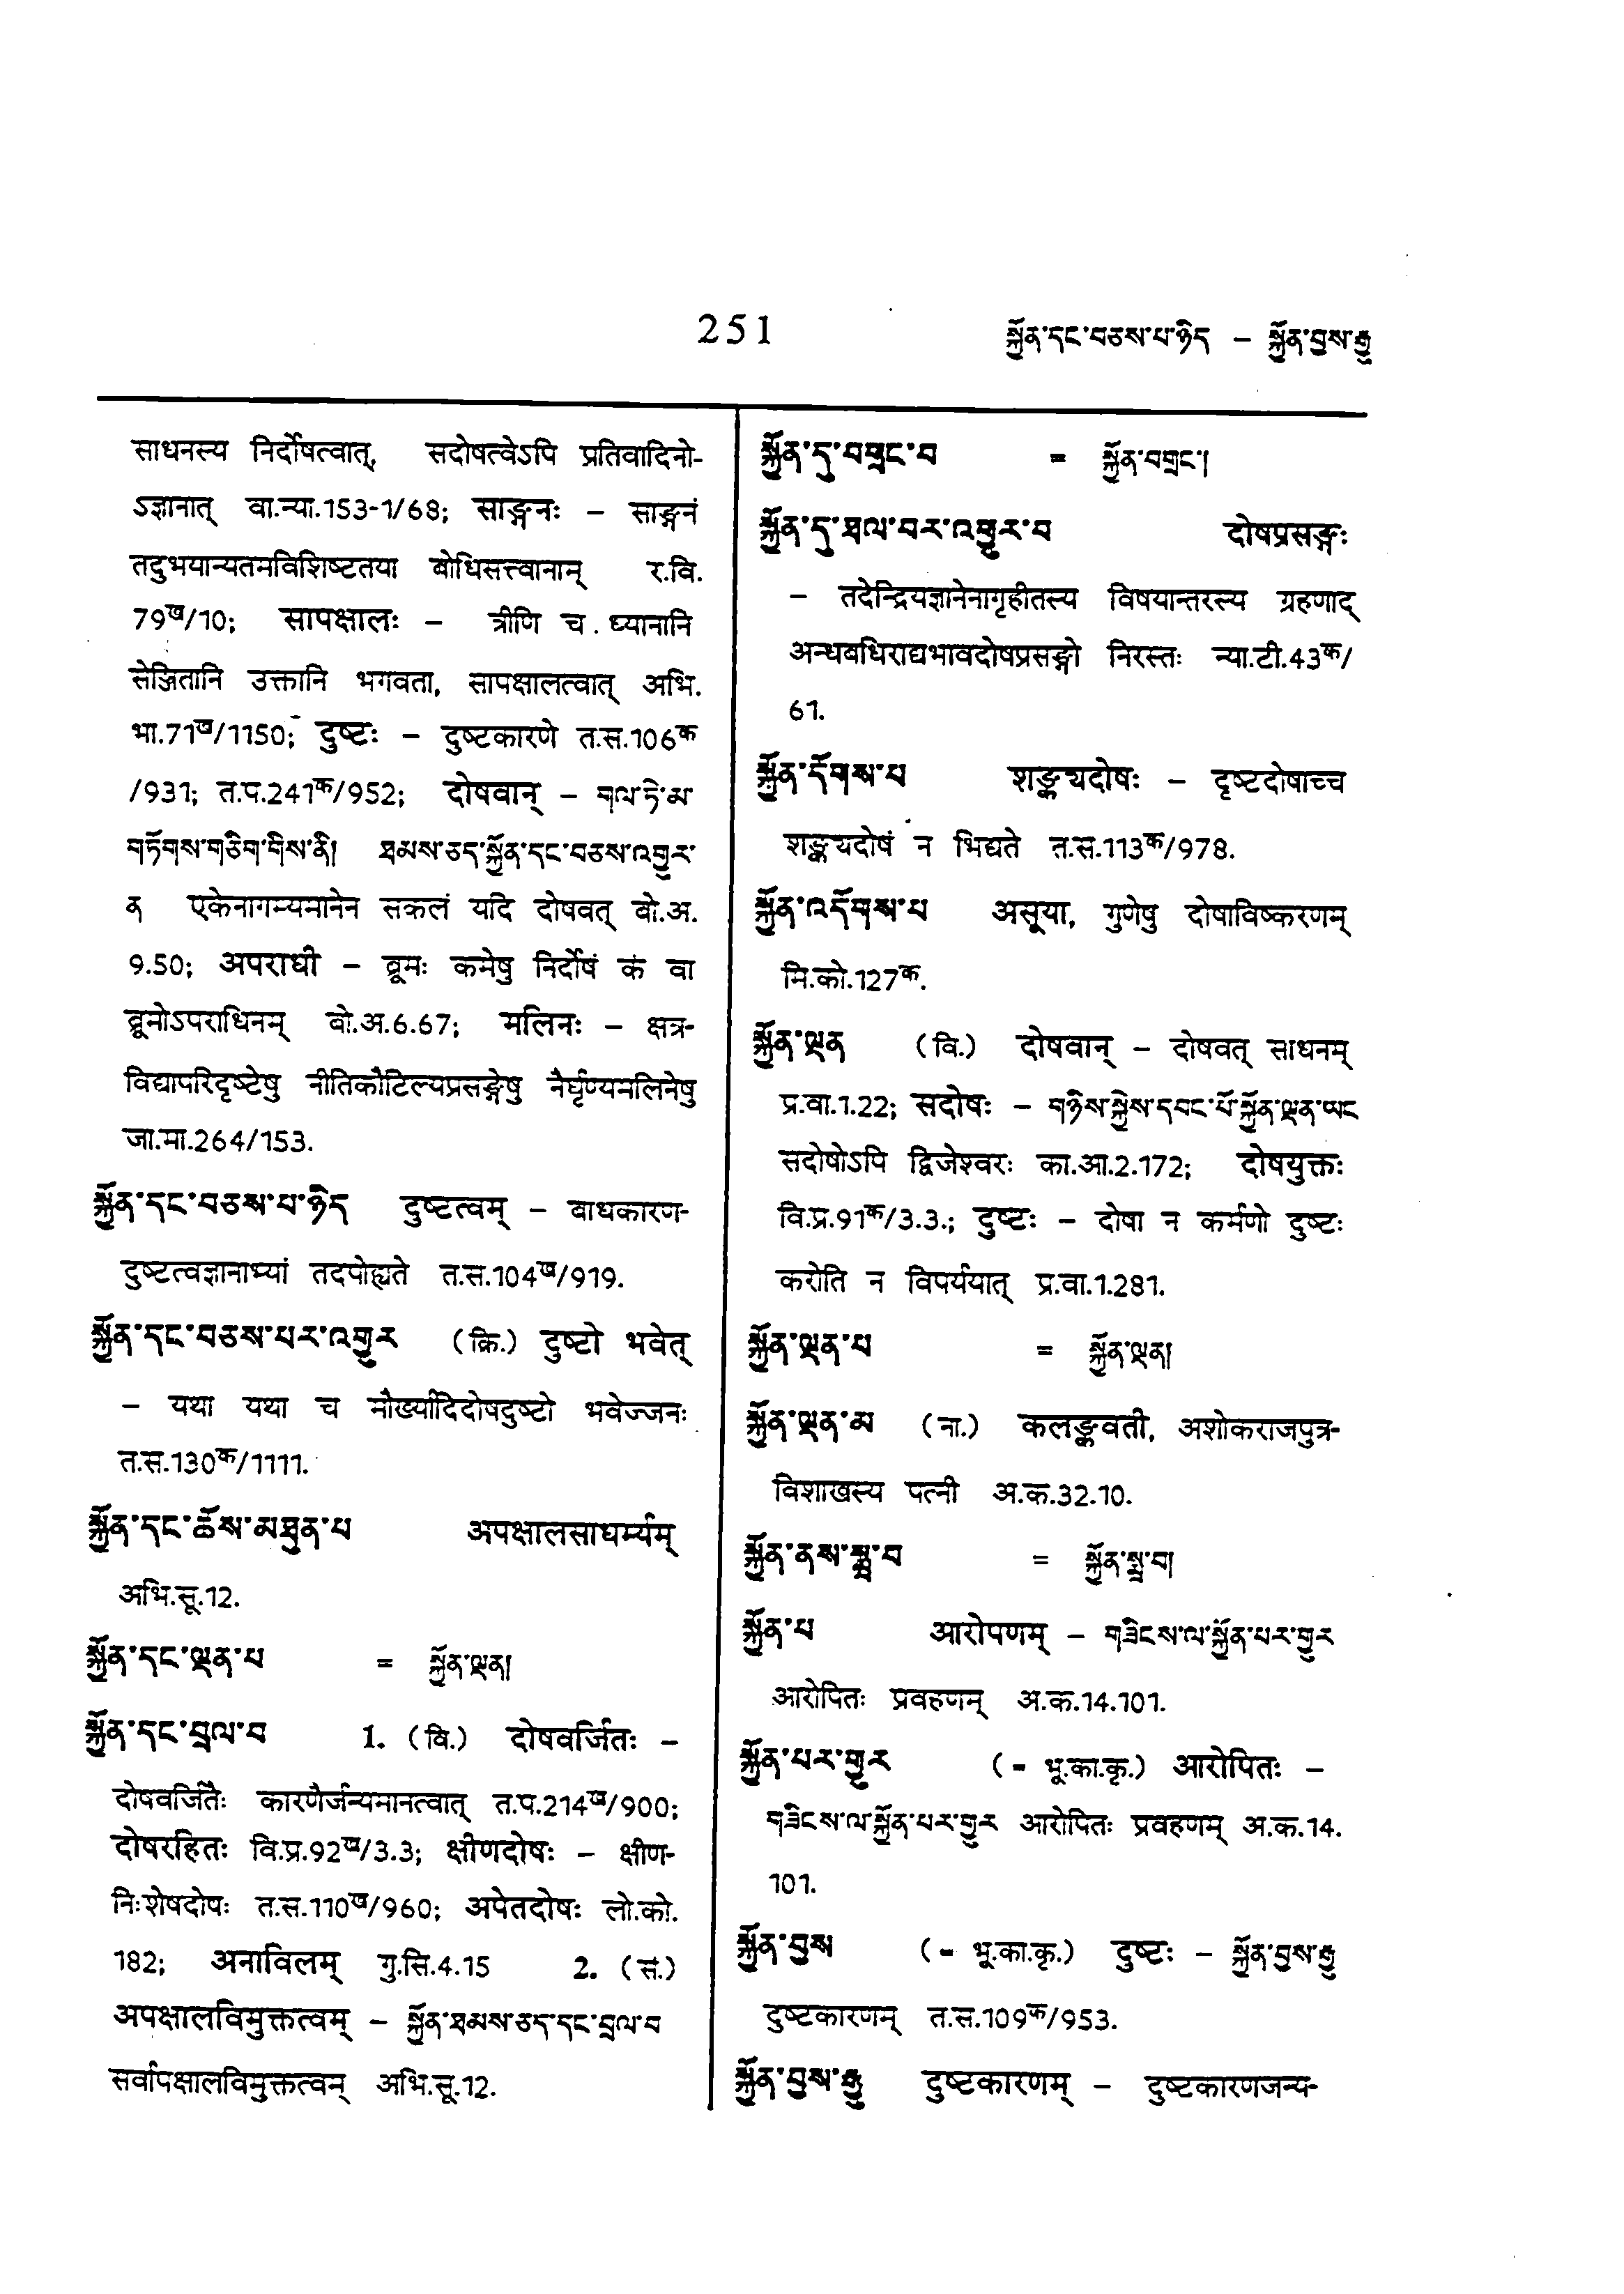 251
སྐྱོན་དང་བཅས་པ་ཉིད – སྐྱོན་བྱས་རྒྱུ
साधनस्य निर्दोषत्वात्, सदोषत्वेऽपि प्रतिवादिनो-
ऽज्ञानात् वा.न्या.153-1/68; साङ्गनः – साङ्गनं
तदुभयान्यतमविशिष्टतया बोधिसत्त्वानाम् र.वि.
79ख/10; सापक्षालः – त्रीणि च ध्यानानि
सेञ्जितानि उक्तानि भगवता, सापक्षालत्वात् अभि.
भा.71ख/1150; दुष्टः – दुष्टकारणे त.स.106क
/931; त.प.241क/952; दोषवान् – གལ་ཏེ་མ་
གཏོགས་གཅིག་གིས་ནི། ཐམས་ཅད་སྐྱོན་དང་བཅས་འགྱུར་
ན एकेनागम्यमानेन सकलं यदि दोषवत् बो.अ.
9.50; अपराधी – ब्रूमः कमेषु निर्दोषं कं वा
ब्रूमोऽपराधिनम् बो.अ.6.67; मलिनः – क्षत्र-
विद्यापरिदृष्टेषु नीतिकौटिल्यप्रसङ्गेषु नैर्घृण्यमलिनेषु
जा.मा.264/153.
སྐྱོན་དང་བཅས་པ་ཉིད दुष्टत्वम् – बाधकारण-
दुष्टत्वज्ञानाभ्यां तदपोह्यते त.स.104ख/919.
སྐྱོན་དང་བཅས་པར་འགྱུར (क्रि.) दुष्टो भवेत्
– यथा यथा च मौर्ख्यादिदोषदुष्टो भवेज्जनः
त.स.130क/1111.
སྐྱོན་དང་ཆོས་མཐུན་པ अपक्षालसाधर्म्यम्
अभि.सू.12.
སྐྱོན་དང་ལྡན་པ = སྐྱོན་ལྡན།
སྐྱོན་དང་བྲལ་བ 1. (वि.) दोषवर्जितः –
दोषवर्जितैः कारणैर्जन्यमानत्वात् त.प.214ख/900;
दोषरहितः वि.प्र.92ख/3.3; क्षीणदोषः – क्षीण-
निःशेषदोषः त.स.110ख/960; अपेतदोषः लो.को.
182; अनाविलम् गु.सि.4.15 2. (सं.)
अपक्षालविमुक्तत्वम् – སྐྱོན་ཐམས་ཅད་དང་བྲལ་བ
सर्वापक्षालविमुक्तत्वम् अभि.सू.12.
སྐྱོན་དུ་བགྲང་བ = སྐྱོན་བགྲང་།
སྐྱོན་དུ་ཐལ་བར་འགྱུར་བ दोषप्रसङ्गः
– तदेन्द्रियज्ञानेनागृहीतस्य विषयान्तरस्य ग्रहणाद्
अन्धबधिराद्यभावदोषप्रसङ्गो निरस्तः न्या.टी.43क/
61.
སྐྱོན་དོགས་པ शङ्क्यदोषः – दृष्टदोषाच्च
शङ्क्यदोषं न भिद्यते त.स.113क/978.
སྐྱོན་འདོགས་པ असूया, गुणेषु दोषाविष्करणम्
मि.को.127क.
སྐྱོན་ལྡན (वि.) दोषवान् – दोषवत् साधनम्
प्र.वा.1.22; सदोषः – གཉིས་སྐྱེས་དབང་པོ་སྐྱོན་ལྡན་ཡང
सदोषोऽपि द्विजेश्वरः का.आ.2.172; दोषयुक्तः
वि.प्र.91क/3.3.; दुष्टः – दोषा न कर्मणो दुष्टः
करोति न विपर्ययात् प्र.वा.1.281.
སྐྱོན་ལྡན་པ = སྐྱོན་ལྡན།
སྐྱོན་ལྡན་མ (ना.) कलङ्कवती, अशोकराजपुत्र-
विशाखस्य पत्नी अ.क.32.10.
སྐྱོན་ནས་སྨྲ་བ = སྐྱོན་སྨྲ་བ།
སྐྱོན་པ आरोपणम् – གཟིངས་ལ་སྐྱོན་པར་གྱུར
आरोपितः प्रवहणम् अ.क.14.101.
སྐྱོན་པར་གྱུར (= भू.का.कृ.) आरोपितः –
གཟིངས་ལ་སྐྱོན་པར་གྱུར आरोपितः प्रवहणम् अ.क.14.
101.
སྐྱོན་བྱས (= भू.का.कृ.) दुष्टः – སྐྱོན་བྱས་རྒྱུ
दुष्टकारणम् त.स.109क/953.
སྐྱོན་བྱས་རྒྱུ दुष्टकारणम् – दुष्टकारणजन्य-